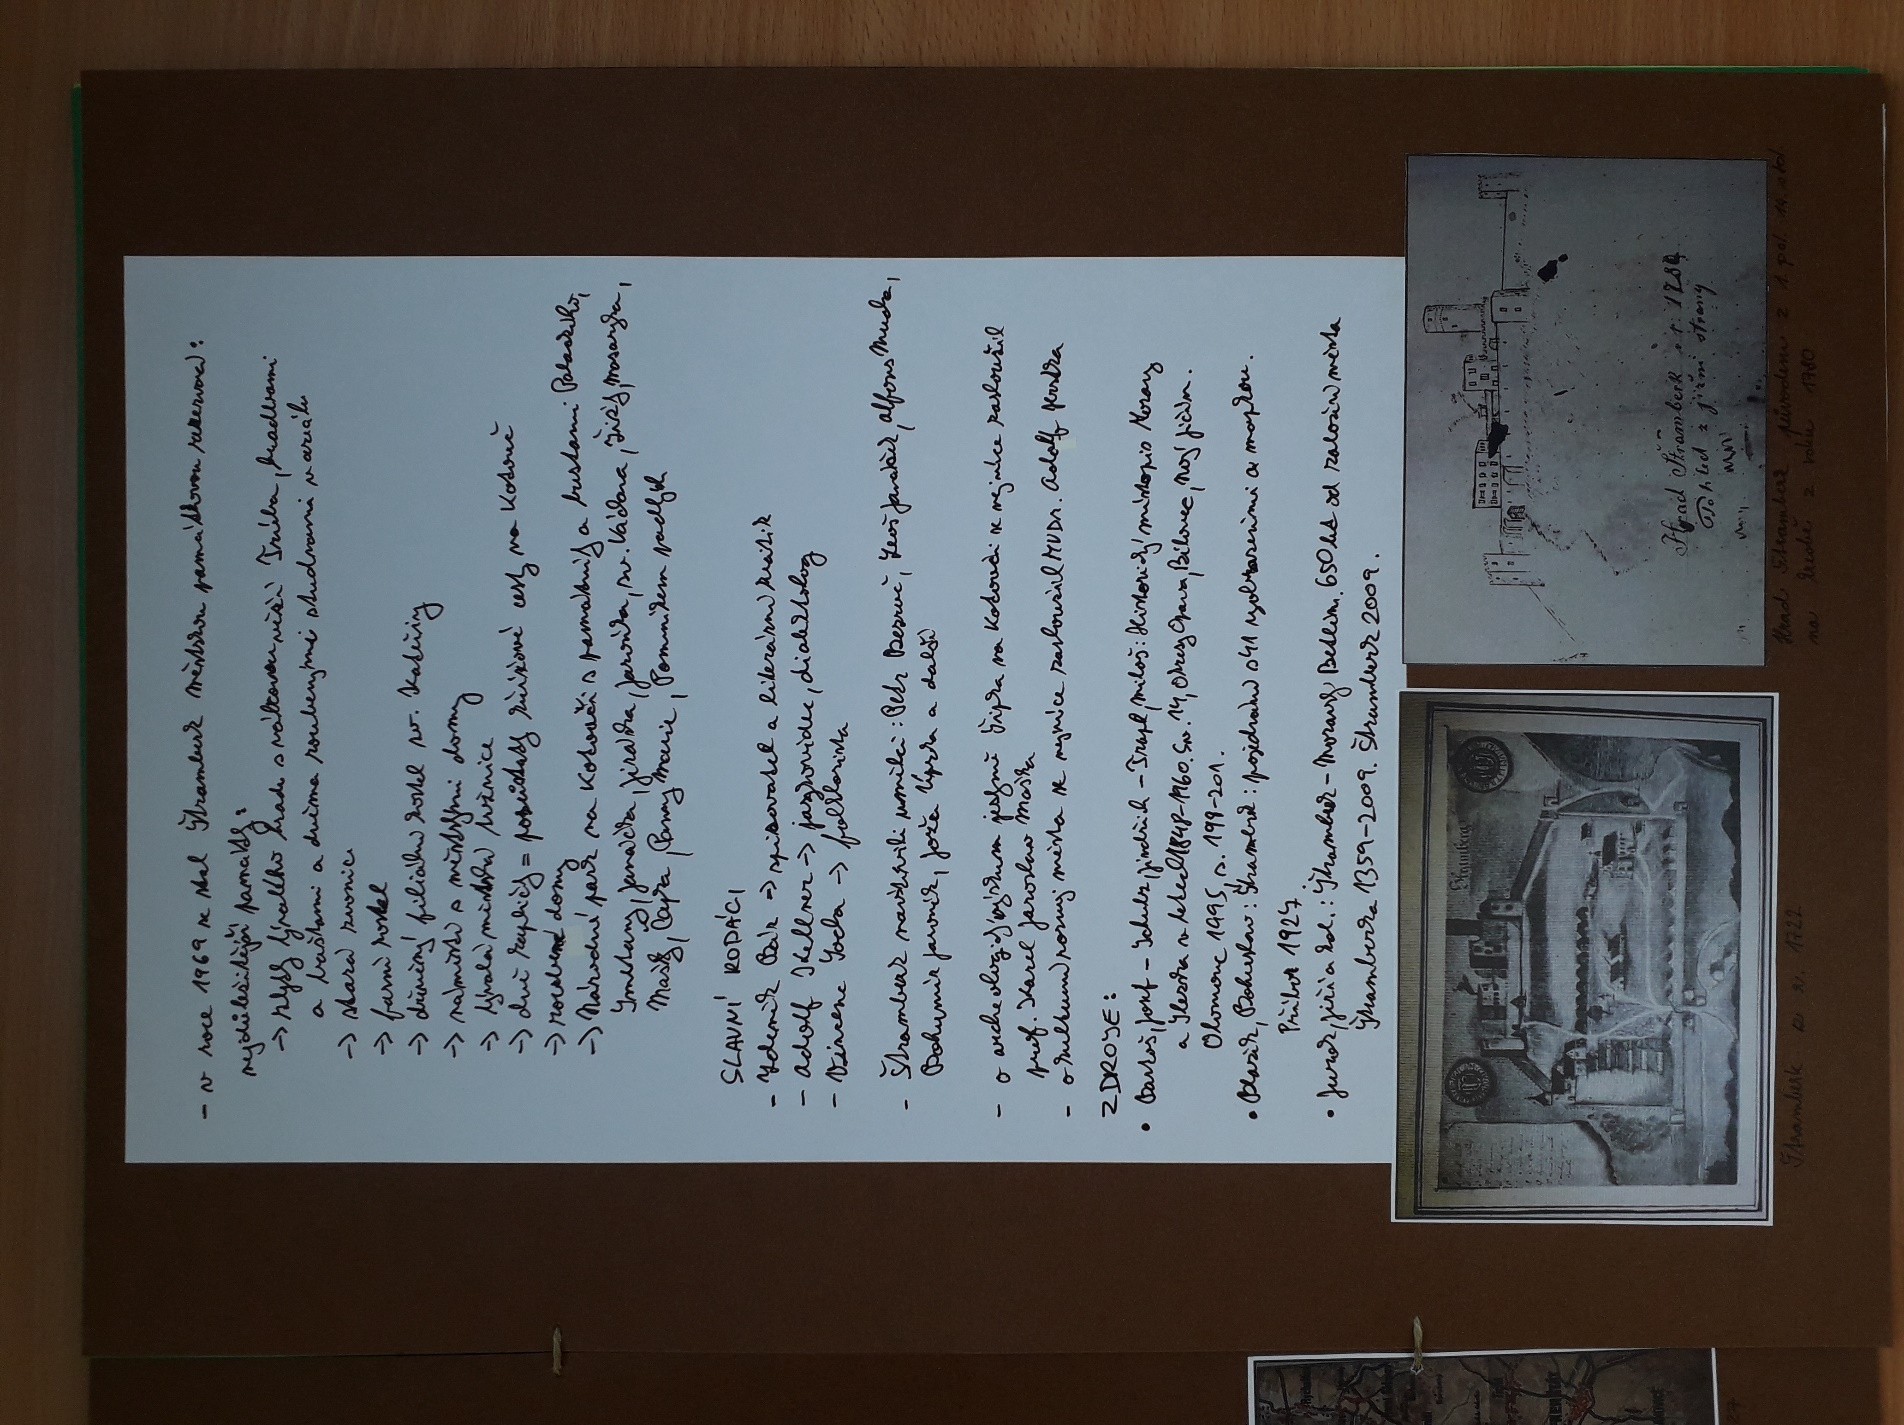 - v roce 1969 se stal Štramberk městskou památkovou rezervací:
nejdůležitější památky:
→ zbytky gotického hradu s válcovou věží Trúba, hradbami
a baštami a dvěma roubenými studnami v areálu
→ stará zvonice
→ farní kostel
→ dřevěný filiální kostel sv. Kateřiny
→ náměstí s městskými domy
→ bývalá městská tržnice
→ dvě kapličky = pozůstatky křížové cesty na Kotouč
→ roubené domy
→ Národní park na Kotouči s památníky a bustami Palackého,
Smetany, Janáčka, Jiráska, Jaroňka, sv. Václava, Žižky, Masaryka,
Mašky, Čapka, Panny Marie, Pomníkem padlých
SLAVNÍ RODÁCI
- Zdeněk Bár → spisovatel a literární kritik
- Adolf Kellner → jazykovědec, dialektolog
- Vincenc Socha → folklorista
- Štramberk navštívili umělci: Petr Bezruč, Leoš Janáček, Alfons Mucha,
Bohumír Jaroněk, Joža Uprka a další
- o archeologický výzkum jeskyně Šipka na Kotouči se nejvíce zasloužil
prof. Karel Jaroslav Maška
- o kulturní rozvoj města se nejvíce zasloužil MUDr. Adolf Hrstka
ZDROJE:
• Bartoš, Josef - Schulz, Jindřich - Trapl, Miloš: Historický místopis Moravy
a Slezska v letech 1848-1960. Sv. 14, okresy Opava, Bílovec, Nový Jičín.
Olomouc 1995, s. 199-201.
• Blažík, Bohuslav: Štramberk: pojednání s 41 vyobrazeními a mapkou.
Příbor 1927.
• Jurok, Jiří a kol.: Štramberk - Moravský Betlém. 650 let od založení města
Štramberka 1359-2009. Štramberk 2009.
Hrad Štramberk r. 1280
Pohled z jižní strany
Stramberg
Štramberk z r. 1722
Hrad Štramberk původem z 1. pol. 14. stol.
na kresbě z roku 1780